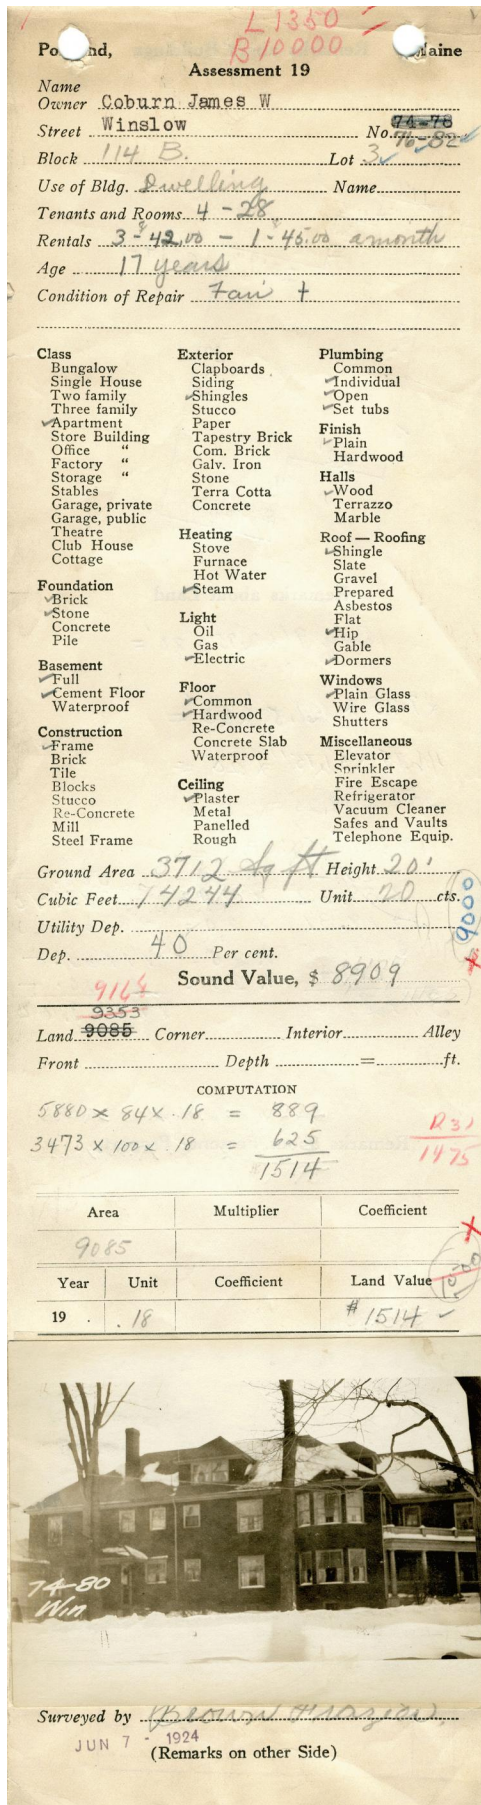 L 1350
B 10000
Po nd, Maine
Assessment 19
Name
Owner Coburn James W
Street Winslow No. 74-78
76-82
Block 114 B. Lot 3
Use of Bldg. Dwelling Name
Tenants and Rooms 4 - 28
Rentals 3 - 42.00 — 1 - 45.00 a month
Age 17 years
Condition of Repair Fair +
Class
Bungalow
Single House
Two family
Three family
✓Apartment
Store Building
Office "
Factory "
Storage "
Stables
Garage, private
Garage, public
Theatre
Club House
Cottage
Foundation
✓Brick
✓Stone
Concrete
Pile
Basement
✓Full
✓Cement Floor
Waterproof
Construction
✓Frame
Brick
Tile
Blocks
Stucco
Re-Concrete
Mill
Steel Frame
Exterior
Clapboards
Siding
✓Shingles
Stucco
Paper
Tapestry Brick
Com. Brick
Galv. Iron
Stone
Terra Cotta
Concrete
Heating
Stove
Furnace
Hot Water
✓Steam
Light
Oil
Gas
✓Electric
Floor
✓Common
✓Hardwood
Re-Concrete
Concrete Slab
Waterproof
Ceiling
✓Plaster
Metal
Panelled
Rough
Plumbing
Common
✓Individual
✓Open
✓Set tubs
Finish
✓Plain
Hardwood
Halls
✓Wood
Terrazzo
Marble
Roof — Roofing
✓Shingle
Slate
Gravel
Prepared
Asbestos
Flat
✓Hip
Gable
✓Dormers
Windows
✓Plain Glass
Wire Glass
Shutters
Miscellaneous
Elevator
Sprinkler
Fire Escape
Refrigerator
Vacuum Cleaner
Safes and Vaults
Telephone Equip.
Ground Area 3712 sq ft Height 20'
Cubic Feet 74244 Unit 20 cts.
9000
Utility Dep.
Dep. 40 Per cent.
Sound Value, $ 8909
9353
Land 9085 Corner Interior Alley
Front Depth = ft.
COMPUTATION
5880 × 84 × .18 = 889
3473 × 100 × .18 = 625
1514
1475
Area Multiplier Coefficient
9085
Year Unit Coefficient Land Value
19 . .18 # 1514 ✓
74-80
Win
Surveyed by Brown Frazier.
JUN 7 - 1924
(Remarks on other Side)